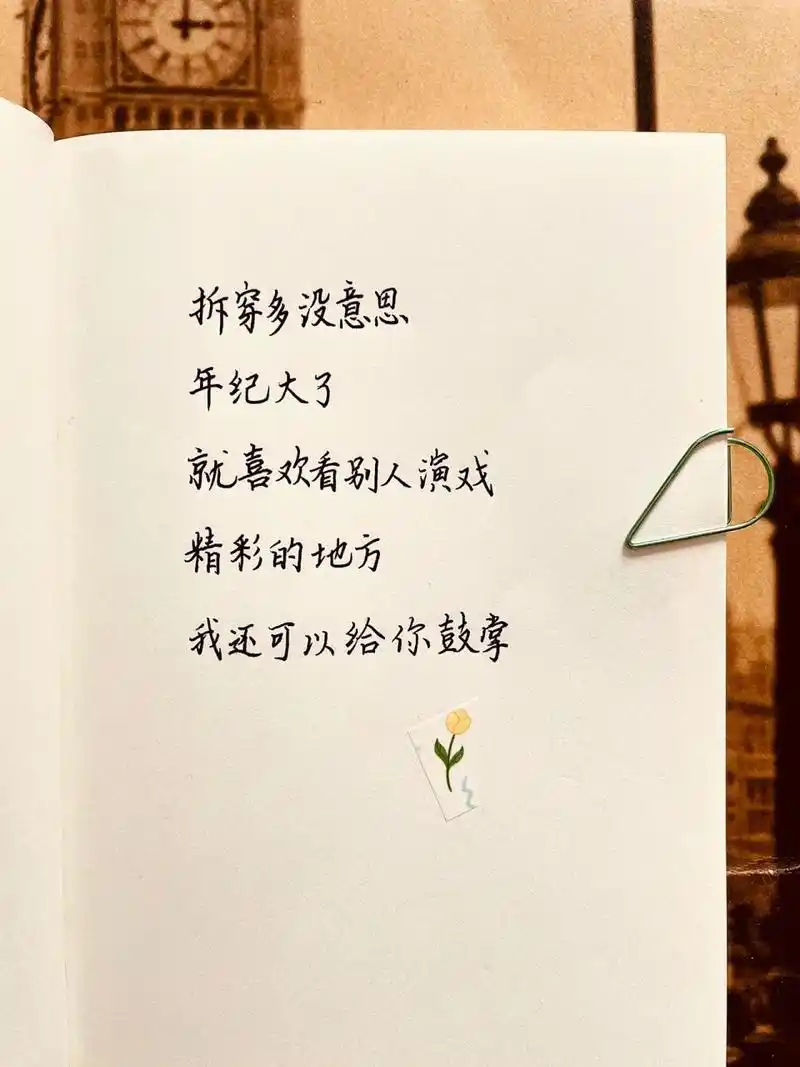 拆穿多没意思
年纪大了
就喜欢看别人演戏
精彩的地方
我还可以给你鼓掌